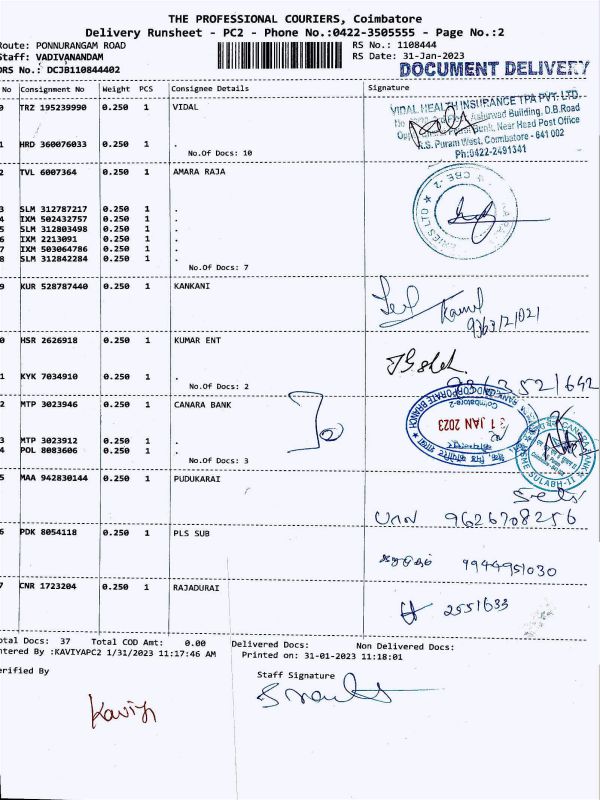 THE PROFESSIONAL COURIERS, Coimbatore
Delivery Runsheet - PC2 - Phone No.:0422-3505555 - Page No.:2
Route: PONNURANGAM ROAD RS No.: 1108444
Staff: VADIVANANDAM RS Date: 31-Jan-2023
DRS No.: DCJB110844402 DOCUMENT DELIVERY
No Consignment No Weight PCS Consignee Details Signature
0 TRZ 195239990 0.250 1 VIDAL
VIDAL HEALTH INSURANCE TPA PVT. LTD.
D.B.Road
Bank, Near Head Post Office
R.S. Puram West, Coimbatore - 641 002
Ph:0422-2491341
1 HRD 360076033 0.250 1 .
No.Of Docs: 10
2 TVL 6007364 0.250 1 AMARA RAJA
3 SLM 312787217 0.250 1 .
4 IXM 502432757 0.250 1 .
5 SLM 312803498 0.250 1 .
6 IXM 2213091 0.250 1 .
7 IXM 503064786 0.250 1 .
8 SLM 312842284 0.250 1 .
No.Of Docs: 7
9 KUR 528787440 0.250 1 KANKANI
0 HSR 2626918 0.250 1 KUMAR ENT
1 KYK 7034910 0.250 1 .
No.Of Docs: 2
2 MTP 3023946 0.250 1 CANARA BANK
CORPORATE BRANCH
Coimbatore-2
31 JAN 2023
3 MTP 3023912 0.250 1 .
4 POL 8083606 0.250 1 .
No.Of Docs: 3
5 MAA 942830144 0.250 1 PUDUKARAI
9626708256
6 PDK 8054118 0.250 1 PLS SUB
9944951030
7 CNR 1723204 0.250 1 RAJADURAI
2551633
otal Docs: 37 Total COD Amt: 0.00 Delivered Docs: Non Delivered Docs:
ntered By :KAVIYAPC2 1/31/2023 11:17:46 AM Printed on: 31-01-2023 11:18:01
erified By Staff Signature
Kaviya